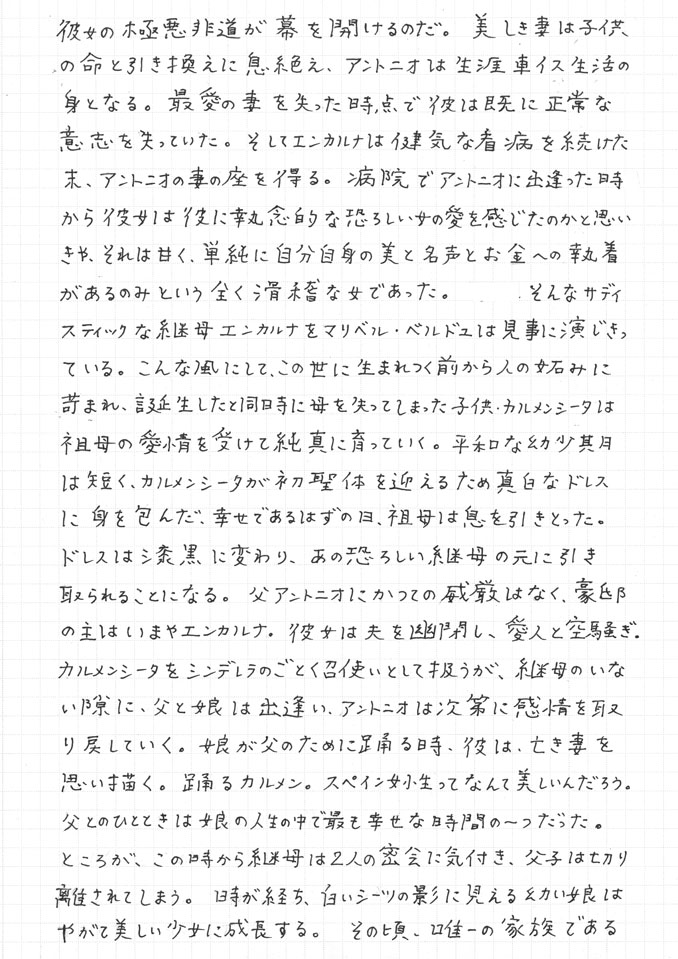 彼女の極悪非道が幕を開けるのだ。 美しき妻は子供
の命と引き換えに息絶え、アントニオは生涯車イス生活の
身となる。 最愛の妻を失った時点で彼は既に正常な
意志を失っていた。そしてエンカルナは健気な看病を続けた
末、アントニオの妻の座を得る。病院でアントニオに出逢った時
から彼女は彼に執念的な恐ろしい女の愛を感じたのかと思い
きや、それは甘く、単純に自分自身の美と名声とお金への執着
があるのみという全く滑稽な女であった。 そんなサディ
スティックな継母エンカルナをマリベル・ベルドゥは見事に演じきっ
ている。こんな風にして、この世に生まれつく前から人の妬みに
苛まれ、誕生したと同時に母を失ってしまった子供・カルメンシータは
祖母の愛情を受けて純真に育っていく。平和な幼少期
は短く、カルメンシータが初聖体を迎えるため真白なドレス
に身を包んだ、幸せであるはずの日、祖母は息を引きとった。
ドレスは漆黒に変わり、あの恐ろしい継母の元に引き
取られることになる。 父アントニオにかつての威厳はなく、豪邸
の主はいまやエンカルナ。彼女は夫を幽閉し、愛人と空騒ぎ。
カルメンシータをシンデレラのごとく召使いとして扱うが、継母のいな
い隙に、父と娘は出逢い、アントニオは次第に感情を取
り戻していく。娘が父のために踊る時、彼は、亡き妻を
思い描く。踊るカルメン。スペイン女性ってなんて美しいんだろう。
父とのひとときは娘の人生の中で最も幸せな時間の一つだった。
ところが、この時から継母は2人の密会に気付き、父子は切り
離されてしまう。 時が経ち、白いシーツの影に見える幼い娘は
やがて美しい少女に成長する。 その頃、唯一の家族である